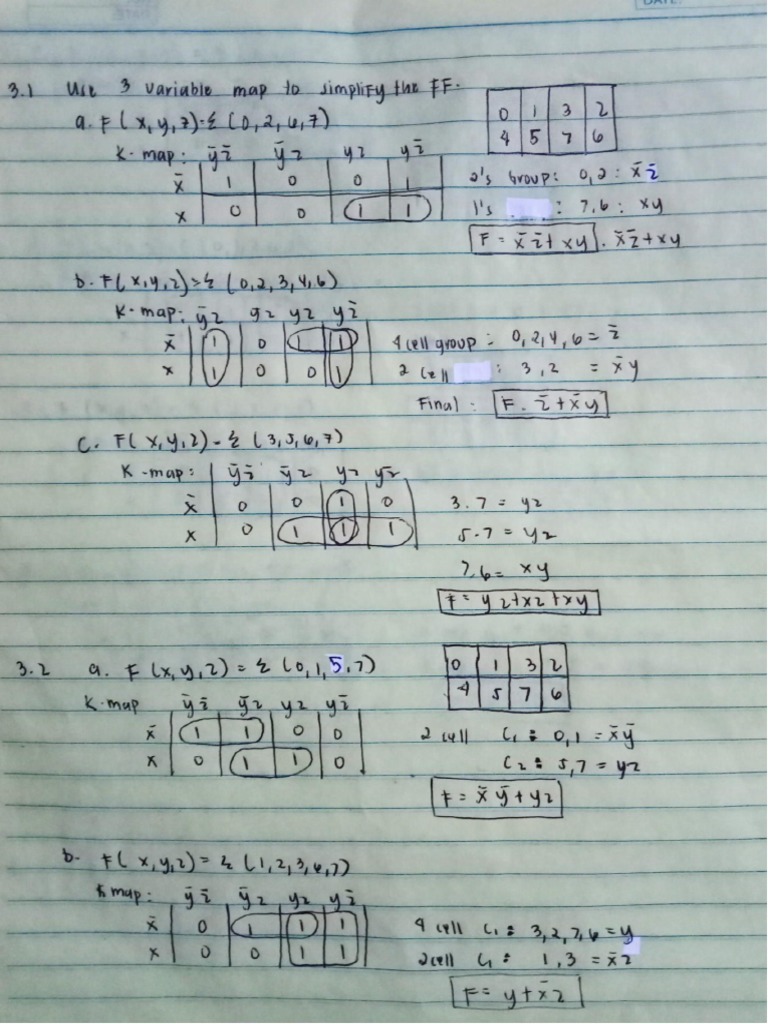 DATE:
3.1 Use 3 variable map to simplify the FF.
a. F(x,y,z)=Σ(0,2,6,7)
0 1 3 2
4 5 7 6
K-map: ȳz̄ ȳz yz yz̄
x̄ 1 0 0 1
x 0 0 1 1
2's Group: 0,2: x̄z̄
1's : 7,6: xy
F = x̄z̄ + xy . x̄z̄ + xy
b. F(x,y,z)=Σ(0,2,3,4,6)
K-map: ȳz yz yz yz̄
x̄ 1 0 1 1
x 1 0 0 1
4 cell group: 0,2,4,6 = z̄
2 cell : 3,2 = x̄y
Final: F. z̄ + x̄y
c. F(x,y,z)-Σ(3,5,6,7)
K-map: ȳz̄ ȳz yz yz̄
x̄ 0 0 1 0
x 0 1 1 1
3.7 = yz
5-7 = yz
7,6 = xy
F = yz+xz+xy
3.2 a. F(x,y,z) = Σ(0,1,5,7)
0 1 3 2
4 5 7 6
K-map ȳz̄ ȳz yz yz̄
x̄ 1 1 0 0
x 0 1 1 0
2 cell C1: 0,1 = x̄ȳ
C2: 5,7 = yz
F = x̄ȳ + yz
b. F(x,y,z) = Σ(1,2,3,6,7)
K map: ȳz̄ ȳz yz yz̄
x̄ 0 1 1 1
x 0 0 1 1
4 cell C1: 3,2,7,6 = y
2 cell C1: 1,3 = x̄z
F = y + x̄z